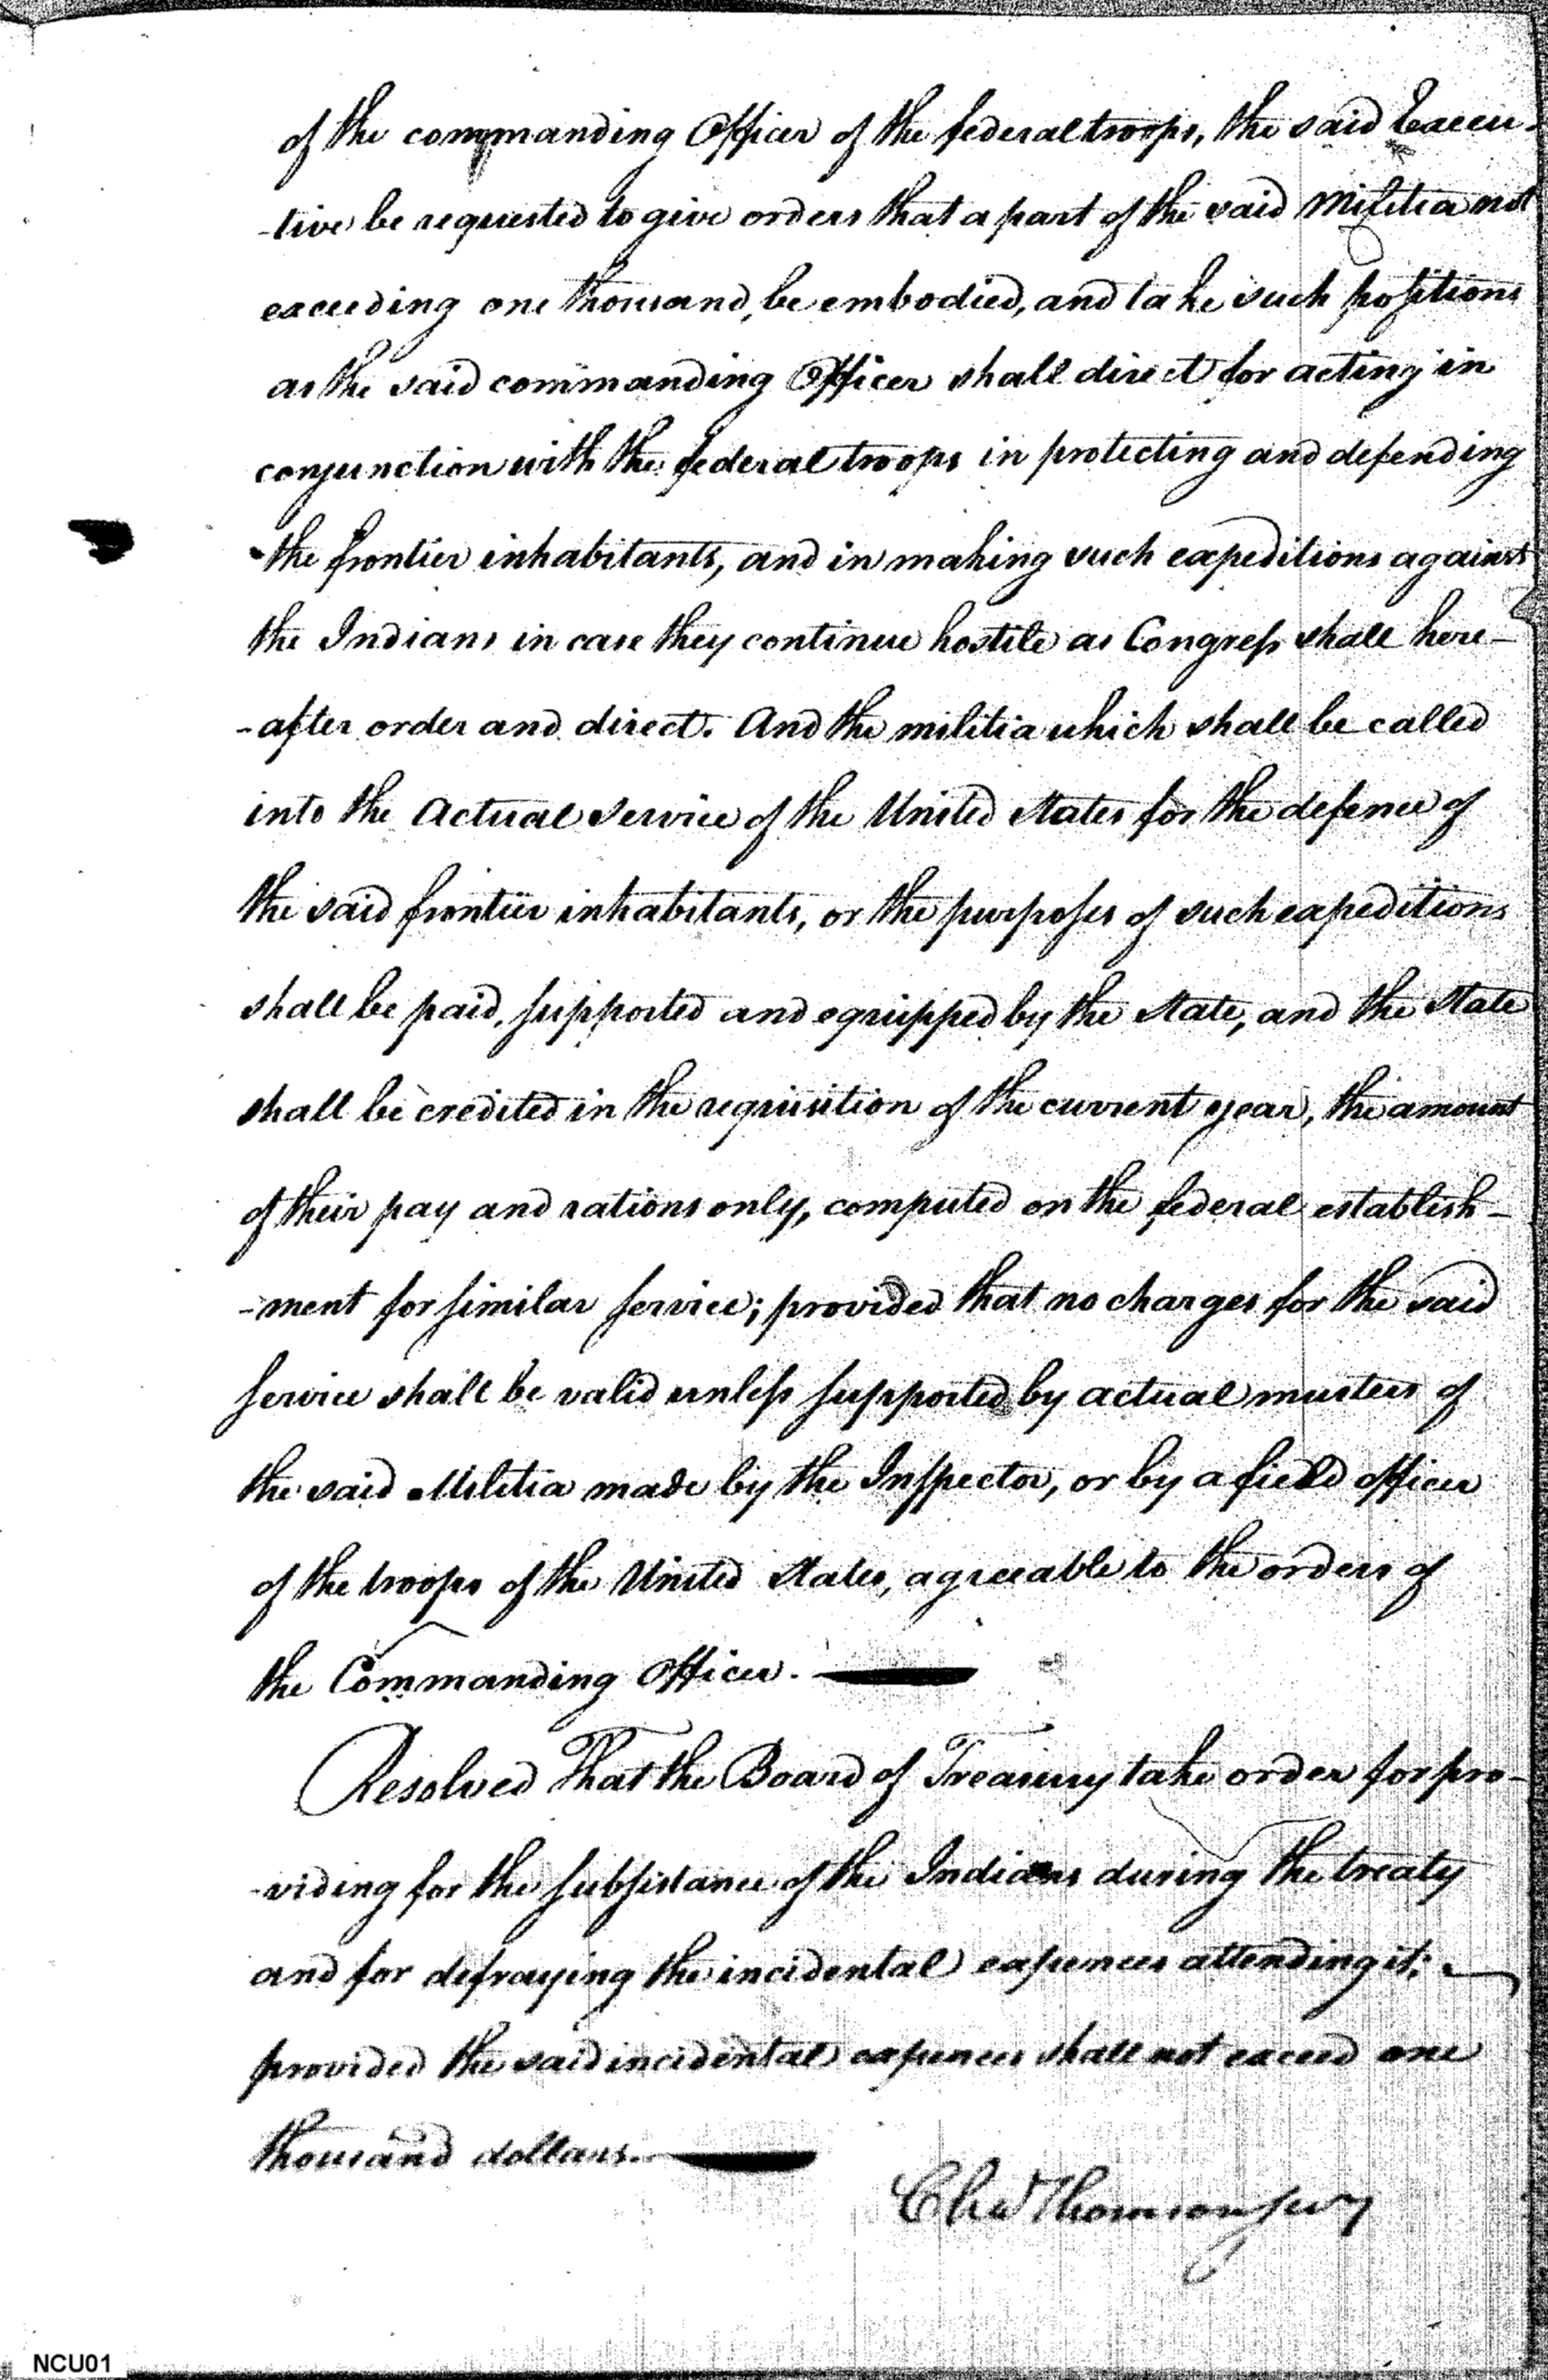 of the commanding Officer of the federal troops, the said Execu-
-tive be requested to give orders that a part of the said Militia not
exceeding one thousand, be embodied, and take such positions
as the said commanding Officer shall direct for acting in
conjunction with the federal troops in protecting and defending
the frontier inhabitants, and in making such expeditions against
the Indians in case they continue hostile as Congress shall here-
-after order and direct. And the militia which shall be called
into the Actual service of the United States for the defence of
the said frontier inhabitants, or the purposes of such expeditions
shall be paid, supported and equipped by the State, and the State
shall be credited in the requisition of the current year, the amount
of their pay and rations only, computed on the federal establish-
-ment for similar service; provided that no charges for the said
service shall be valid unless supported by actual musters of
the said Militia made by the Inspector, or by a field officer
of the troops of the United States, agreeable to the orders of
the Commanding Officer.
Resolved That the Board of Treasury take order for pro-
-viding for the subsistance of the Indians during the treaty
and for defraying the incidental expences attending it;
provided the said incidental expences shall not exceed one
thousand dollars.
Chas Thomson secy
NCU01